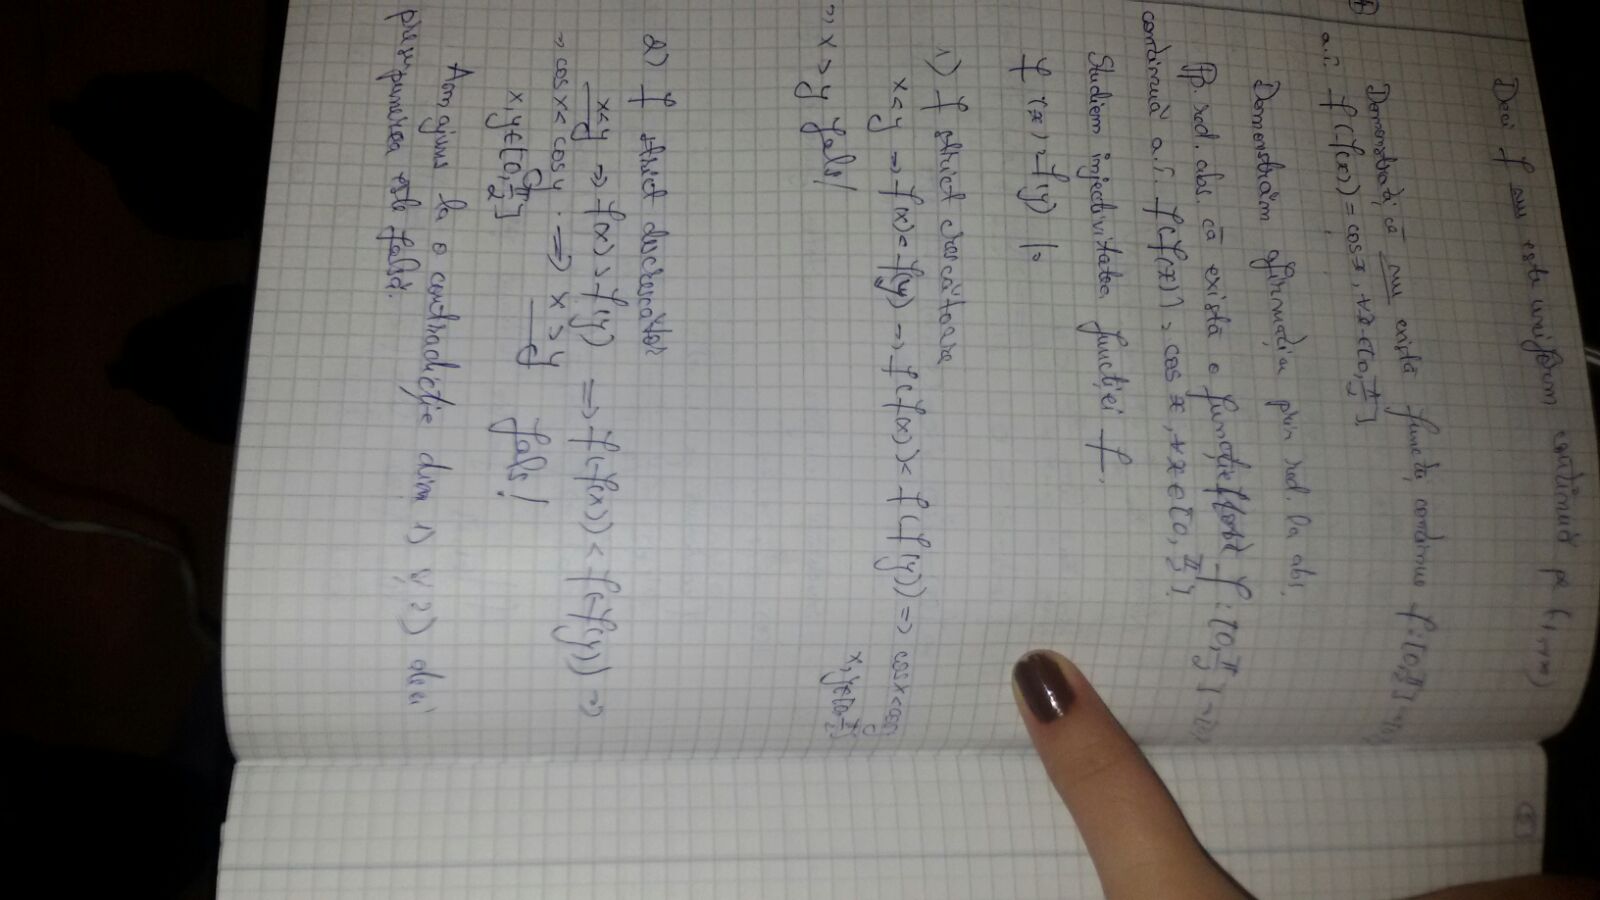 Deci f nu este uniform continuă pe (1,+∞)
Demonstrați că nu există funcții continue f:[0,π/2] →
a.î. f(f(x)) = cos x, ∀x∈[0,π/2]
Demonstrăm afirmația prin red. la abs.
Pp. red. abs. că există o funcție f : [0,π/2] →
continuă a.î. f(f(x)) = cos x, ∀x∈[0,π/2].
Studiem injectivitatea funcției f.
f(x) = f(y) |∘
1) f strict crescătoare
x<y ⇒ f(x)<f(y) ⇒ f(f(x))< f(f(y)) ⇒ cosx<cosy
x,y∈[0,π/2]
⇒ x>y fals!
2) f strict descrescător
x<y ⇒ f(x)>f(y) ⇒ f(f(x))< f(f(y)) ⇒
⇒ cosx< cosy. ⇒ x>y
x,y∈[0,π/2] fals!
Am ajuns la o contradicție din 1) și 2) deci
presupunerea este falsă.